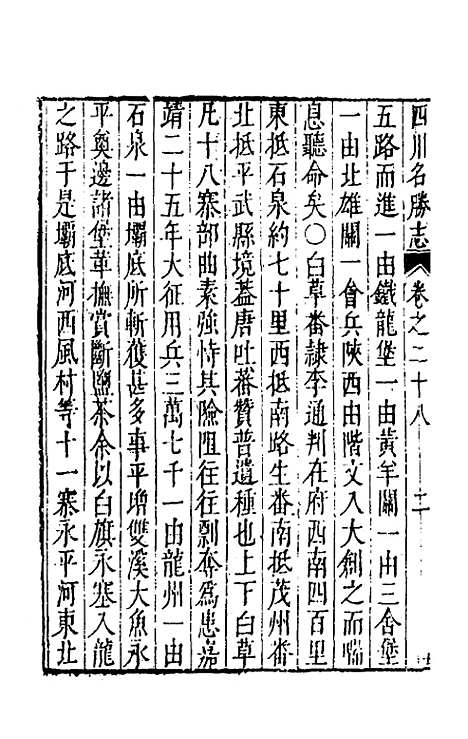 四川名勝志 卷之二十八 十二
五路而進一由鐵龍堡一由黃羊關一由三舍堡
一由北雄關一會兵陝西由階文入大創之而喘
息聽命矣○白草番隸李通判在府西南四百里
東抵石泉約七十里西抵南路生番南抵茂州番
北抵平武縣境蓋唐吐蕃贊普遺種也上下白草
凡十八寨部曲素強恃其險阻往往剽奪爲患嘉
靖二十五年大征用兵三萬七千一由龍州一由
石泉一由壩底所斬獲甚多事平增雙溪大魚永
平奠邊諸堡革撫賞斷鹽茶余以白旗永塞入龍
之路于是壩底河西風村等十一寨永平河東北